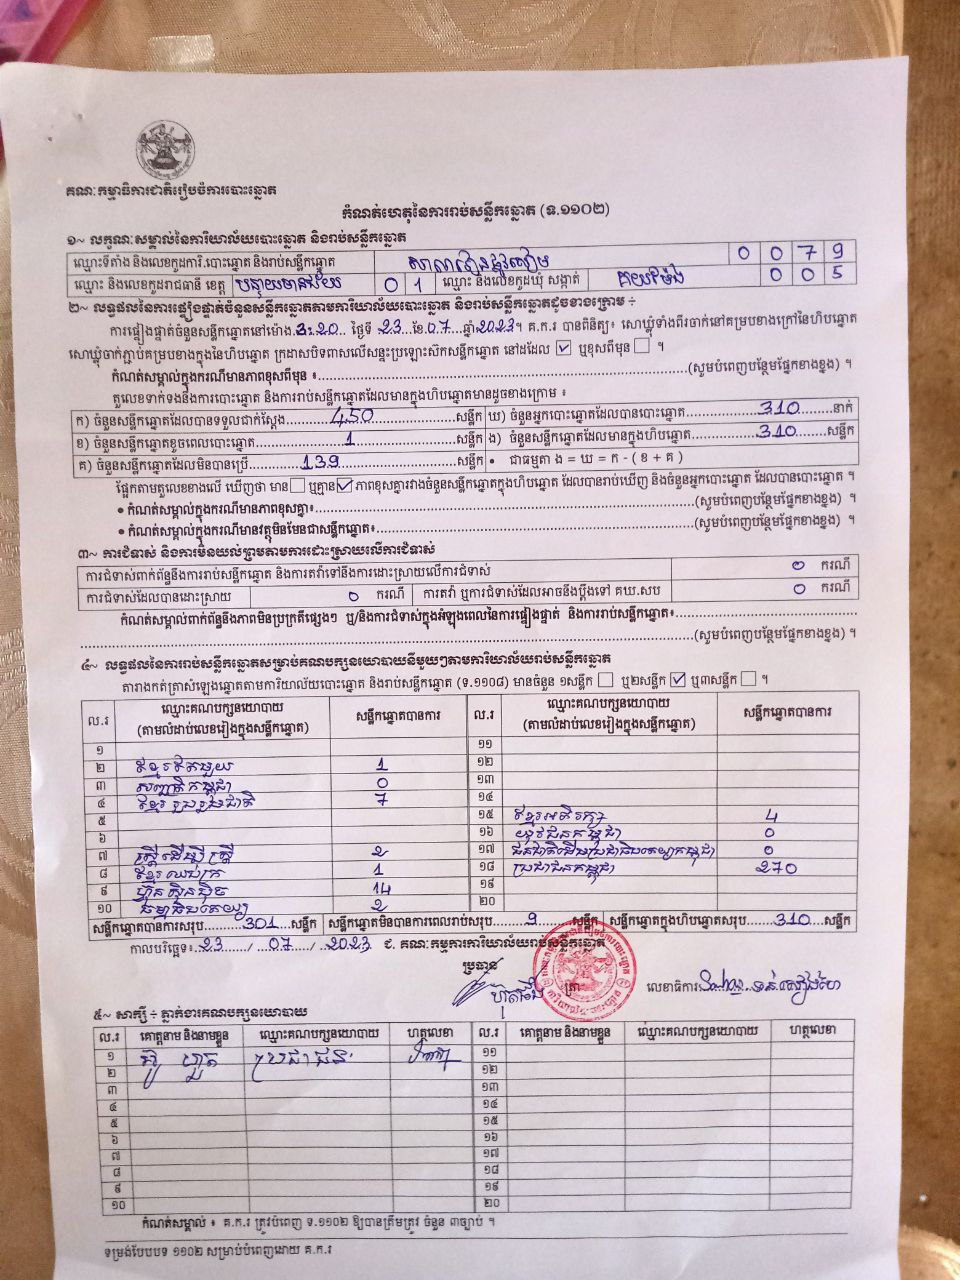 គណៈកម្មាធិការជាតិរៀបចំការបោះឆ្នោត
កំណត់ហេតុនៃការរាប់សន្លឹកឆ្នោត (ទ.១១០២)
១~ លក្ខណៈសម្គាល់នៃការិយាល័យបោះឆ្នោត និងរាប់សន្លឹកឆ្នោត
ឈ្មោះទីតាំង និងលេខកូដការិ.បោះឆ្នោត និងរាប់សន្លឹកឆ្នោត 0 0 7 9
ឈ្មោះ និងលេខកូដរាជធានី ខេត្ត បន្ទាយមានជ័យ 0 1 ឈ្មោះ និងលេខកូដឃុំ សង្កាត់ 0 0 5
២~ លទ្ធផលនៃការផ្ទៀងផ្ទាត់ចំនួនសន្លឹកឆ្នោតតាមការិយាល័យបោះឆ្នោត និងរាប់សន្លឹកឆ្នោតដូចខាងក្រោម ÷
ការផ្ទៀងផ្ទាត់ចំនួនសន្លឹកឆ្នោតនៅម៉ោង.3:20.. ថ្ងៃទី .23..ខែ.07...ឆ្នាំ2023។ គ.ក.រ បានពិនិត្យ៖ សោឃ្លុំទាំងពីរចាក់នៅគម្របខាងក្រៅនៃហិបឆ្នោត
សោឃ្លុំចាក់ភ្ជាប់គម្របខាងក្នុងនៃហិបឆ្នោត ក្រដាសបិទពាសលើសន្ទះប្រឡោះស៊កសន្លឹកឆ្នោត នៅដដែល ☑ ឬខុសពីមុន ☐ ។
កំណត់សម្គាល់ក្នុងករណីមានភាពខុសពីមុន ៖ (សូមបំពេញបន្ថែមផ្នែកខាងខ្នង) ។
តួលេខទាក់ទងនឹងការបោះឆ្នោត និងការរាប់សន្លឹកឆ្នោតដែលមានក្នុងហិបឆ្នោតមានដូចខាងក្រោម ៖
ក) ចំនួនសន្លឹកឆ្នោតដែលបានទទួលជាក់ស្តែង 450 សន្លឹក ឃ) ចំនួនអ្នកបោះឆ្នោតដែលបានបោះឆ្នោត 310 នាក់
ខ) ចំនួនសន្លឹកឆ្នោតខូចពេលបោះឆ្នោត 1 សន្លឹក ង) ចំនួនសន្លឹកឆ្នោតដែលមានក្នុងហិបឆ្នោត 310 សន្លឹក
គ) ចំនួនសន្លឹកឆ្នោតដែលមិនបានប្រើ 139 សន្លឹក • ជាធម្មតា ង = ឃ = ក - ( ខ + គ )
ផ្អែកតាមតួលេខខាងលើ ឃើញថា មាន☐ ឬគ្មាន☑ ភាពខុសគ្នារវាងចំនួនសន្លឹកឆ្នោតក្នុងហិបឆ្នោត ដែលបានរាប់ឃើញ និងចំនួនអ្នកបោះឆ្នោត ដែលបានបោះឆ្នោត ។
• កំណត់សម្គាល់ក្នុងករណីមានភាពខុសគ្នា៖ (សូមបំពេញបន្ថែមផ្នែកខាងខ្នង) ។
• កំណត់សម្គាល់ក្នុងករណីមានវត្ថុមិនមែនជាសន្លឹកឆ្នោត៖ (សូមបំពេញបន្ថែមផ្នែកខាងខ្នង) ។
៣~ ការជំទាស់ និងការមិនយល់ព្រមតាមការដោះស្រាយលើការជំទាស់
ការជំទាស់ពាក់ព័ន្ធនឹងការរាប់សន្លឹកឆ្នោត និងការតវ៉ាទៅនឹងការដោះស្រាយលើការជំទាស់ ០ ករណី
ការជំទាស់ដែលបានដោះស្រាយ ០ ករណី ការតវ៉ា ឬការជំទាស់ដែលអាចនឹងប្តឹងទៅ គឃ.សប ០ ករណី
កំណត់សម្គាល់ពាក់ព័ន្ធនឹងភាពមិនប្រក្រតីផ្សេងៗ ឬ/និងការជំទាស់ក្នុងអំឡុងពេលនៃការផ្ទៀងផ្ទាត់ និងការរាប់សន្លឹកឆ្នោត៖
(សូមបំពេញបន្ថែមផ្នែកខាងខ្នង) ។
៤~ លទ្ធផលនៃការរាប់សន្លឹកឆ្នោតសម្រាប់គណបក្សនយោបាយនីមួយៗតាមការិយាល័យរាប់សន្លឹកឆ្នោត
តារាងកត់ត្រាសំឡេងឆ្នោតតាមការិយាល័យបោះឆ្នោត និងរាប់សន្លឹកឆ្នោត (ទ.១១០៨) មានចំនួន ១សន្លឹក ☐ ឬ២សន្លឹក ☑ ឬ៣សន្លឹក ☐ ។
ល.រ ឈ្មោះគណបក្សនយោបាយ (តាមលំដាប់លេខរៀងក្នុងសន្លឹកឆ្នោត) សន្លឹកឆ្នោតបានការ ល.រ ឈ្មោះគណបក្សនយោបាយ (តាមលំដាប់លេខរៀងក្នុងសន្លឹកឆ្នោត) សន្លឹកឆ្នោតបានការ
១ ១១
២ ខ្មែរតែមួយ 1 ១២
៣ សញ្ជាតិកម្ពុជា 0 ១៣
៤ ខ្មែររួបរួមជាតិ 7 ១៤
៥ ១៥ ខ្មែរអភិរក្ស 4
៦ ១៦ យុវជនកម្ពុជា 0
៧ ស្ត្រីដើម្បីស្ត្រី 2 ១៧ ជនជាតិដើមប្រជាធិបតេយ្យកម្ពុជា 0
៨ ខ្មែរឈប់ក្រ 1 ១៨ ប្រជាជនកម្ពុជា 270
៩ ហ៊្វុនស៊ិនប៉ិច 14 ១៩
១០ ធម្មាធិបតេយ្យ 2 ២០
សន្លឹកឆ្នោតបានការសរុប 301 សន្លឹក សន្លឹកឆ្នោតមិនបានការពេលរាប់សរុប 9 សន្លឹក សន្លឹកឆ្នោតក្នុងហិបឆ្នោតសរុប 310 សន្លឹក
កាលបរិច្ឆេទ៖ 23 / 07 / 2023 ជ. គណៈកម្មការការិយាល័យរាប់សន្លឹកឆ្នោត
ប្រធាន ត្រា លេខាធិការ
៥~ សាក្សី ÷ ភ្នាក់ងារគណបក្សនយោបាយ
ល.រ គោត្តនាម និងនាមខ្លួន ឈ្មោះគណបក្សនយោបាយ ហត្ថលេខា ល.រ គោត្តនាម និងនាមខ្លួន ឈ្មោះគណបក្សនយោបាយ ហត្ថលេខា
១ ប្រជាជន ១១
២ ១២
៣ ១៣
៤ ១៤
៥ ១៥
៦ ១៦
៧ ១៧
៨ ១៨
៩ ១៩
១០ ២០
កំណត់សម្គាល់ ៖ គ.ក.រ ត្រូវបំពេញ ទ.១១០២ ឱ្យបានត្រឹមត្រូវ ចំនួន ៣ច្បាប់ ។
ទម្រង់បែបបទ ១១០២ សម្រាប់បំពេញដោយ គ.ក.រ